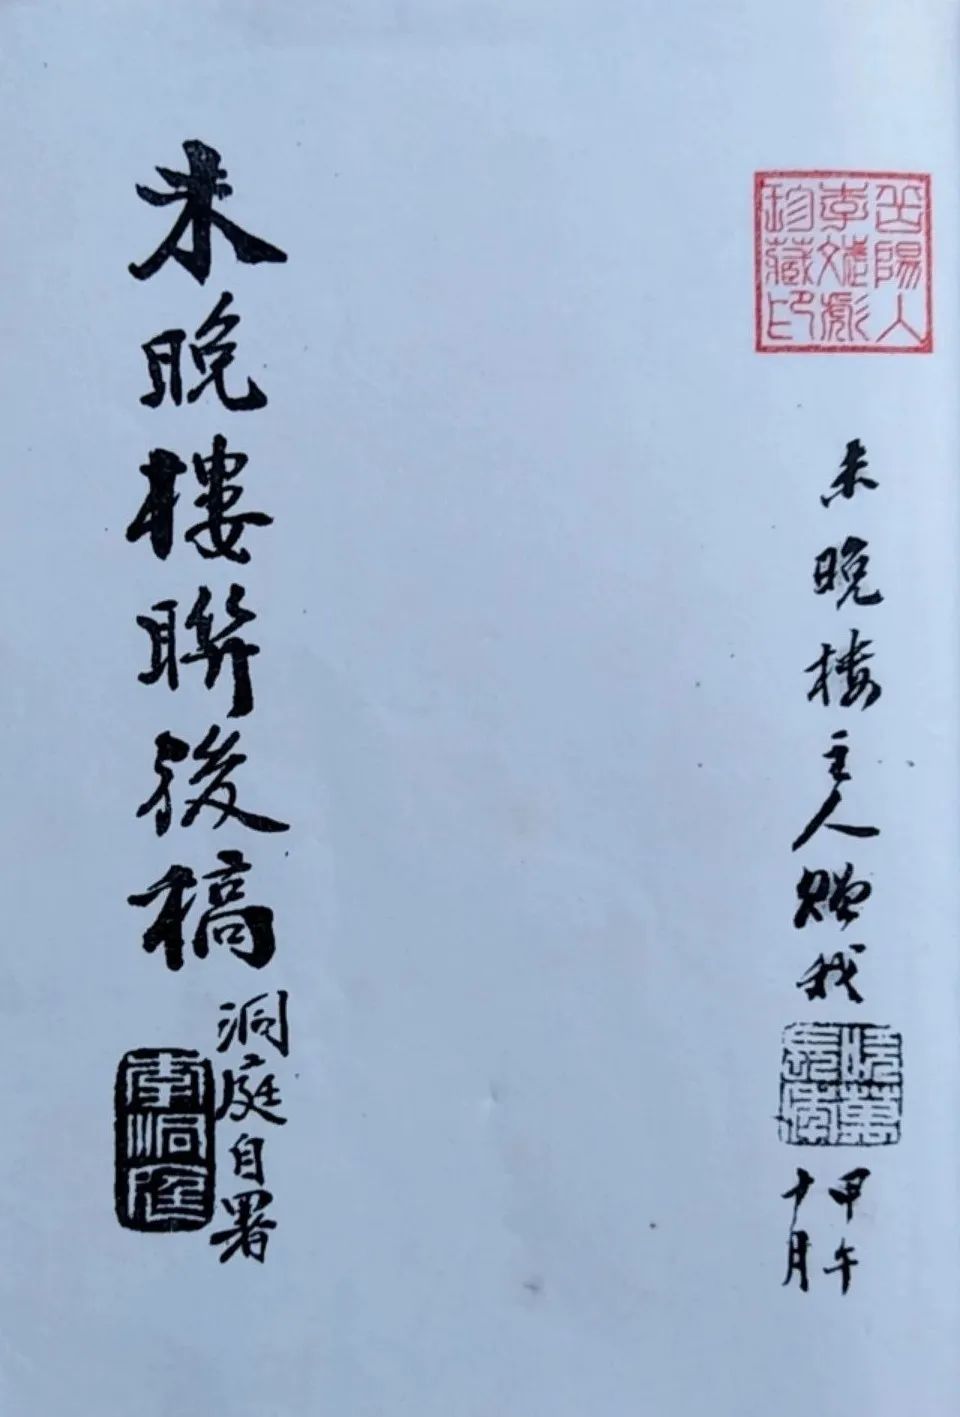 陽人
李
珍藏印
未晚楼主人贈我
甲午
十月
未晚樓聯後稿
洞庭自署
李洞庭